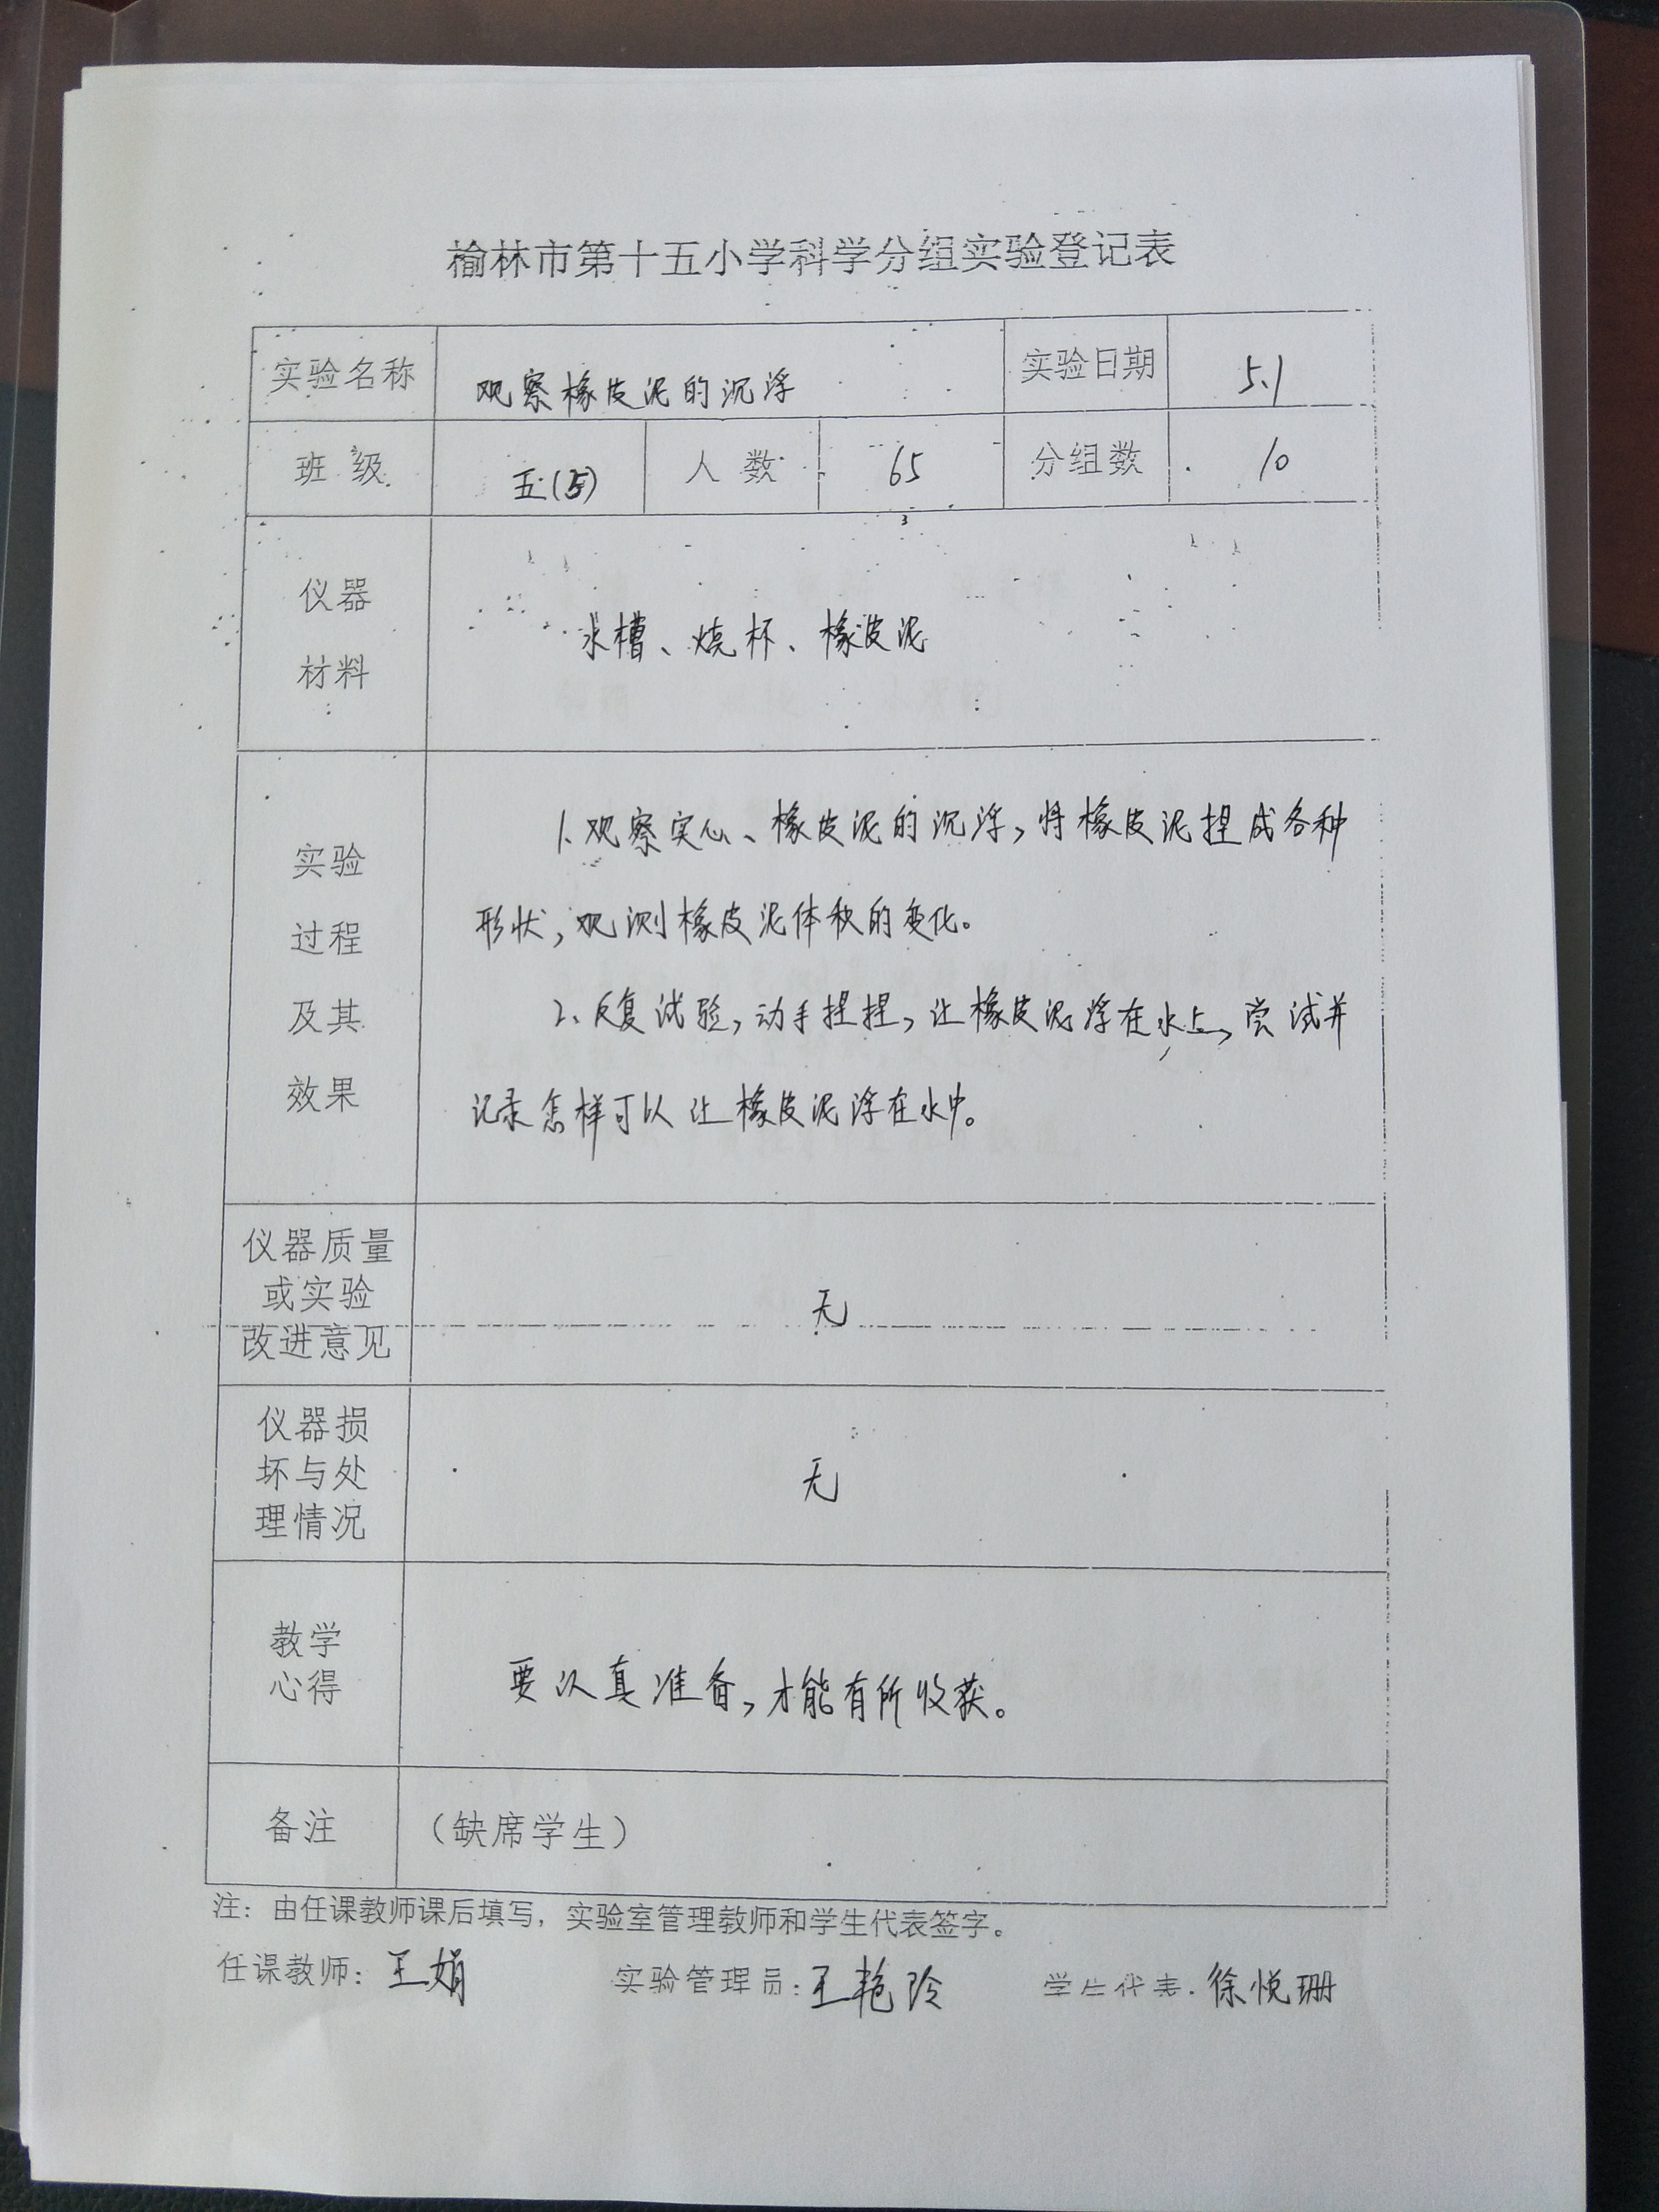 榆林市第十五小学科学分组实验登记表
实验名称 观察橡皮泥的沉浮 实验日期 5.1
班级 五(5) 人数 65 分组数 10
仪器
材料
水槽、烧杯、橡皮泥
实验
过程
及其
效果
1.观察实心、橡皮泥的沉浮,将橡皮泥捏成各种
形状,观测橡皮泥体积的变化。
2.反复试验,动手捏捏,让橡皮泥浮在水上,尝试并
记录怎样可以让橡皮泥浮在水中。
仪器质量
或实验
改进意见
无
仪器损
坏与处
理情况
无
教学
心得
要认真准备,才能有所收获。
备注 (缺席学生)
注:由任课教师课后填写,实验室管理教师和学生代表签字。
任课教师:王娟 实验管理员:王艳玲 学生代表:徐悦珊